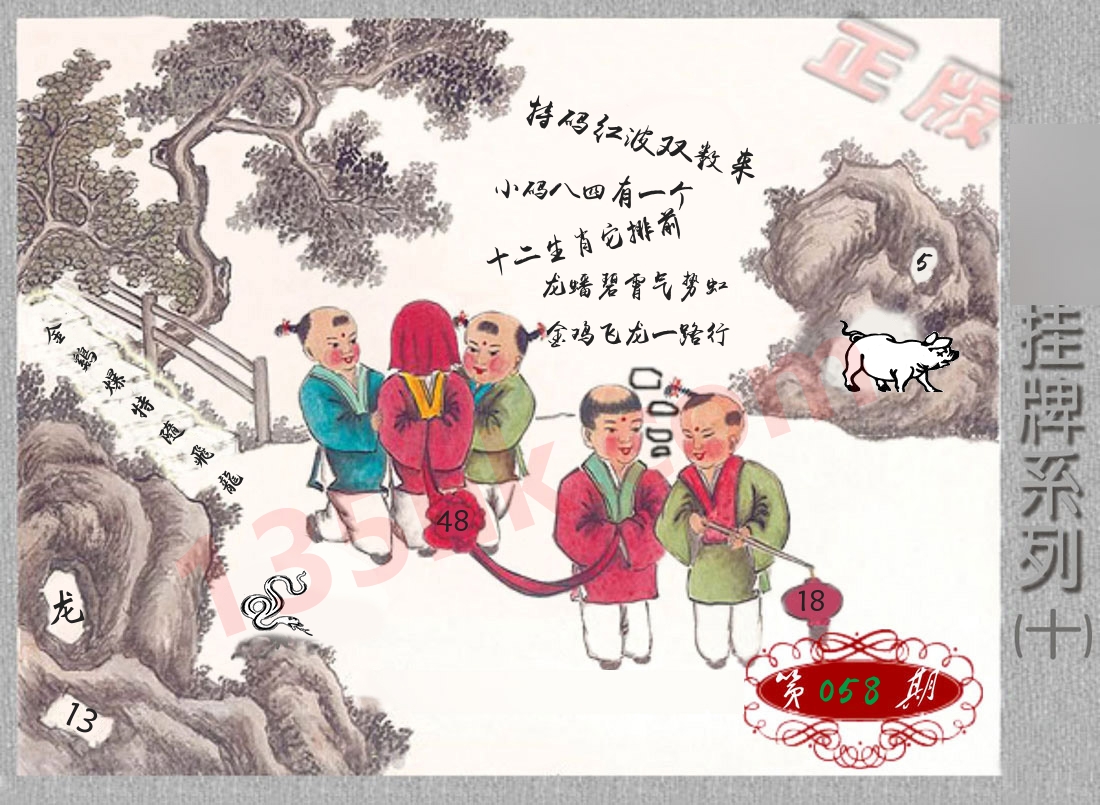 正版
特码红波双数来
小码八四有一个
十二生肖它排前
龙蟠碧霄气势虹
金鸡飞龙一路行
5
挂牌系列(十)
金鷄爆特隨飛龍
48
18
龙
13
第058期